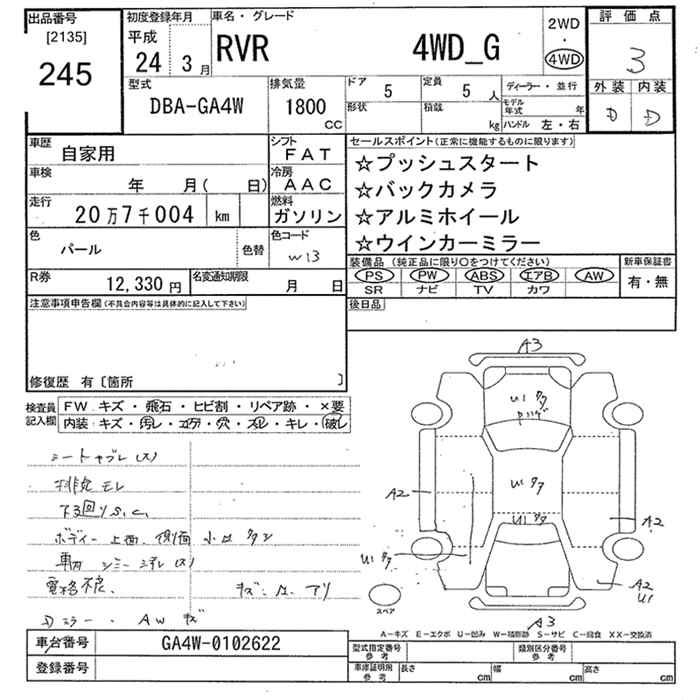 出品番号
[2135]
245
初度登録年月
平成
24 3月
車名・グレード
RVR 4WD_G
2WD
・
4WD
評価点
3
外装 内装
D D
型式
DBA-GA4W
排気量
1800
CC
ドア 5
定員 5 人
形状
積載 kg
ディーラー・並行
モデル年式 年
ハンドル 左・右
車歴
自家用
シフト
FAT
車検
年 月( 日)
冷房
AAC
走行
20万7千004 km
燃料
ガソリン
色
パール
色替
色コード
W13
R券
12,330円
名変通知期限
月 日
セールスポイント(正常に機能するものに限ります)
☆プッシュスタート
☆バックカメラ
☆アルミホイール
☆ウインカーミラー
装備品 (純正品に限り○をつけてください)
新車保証書
PS PW ABS エアB AW
有・無
SR ナビ TV カワ
後日品
注意事項申告欄(不具合内容等は具体的に記入して下さい)
修復歴 有〔箇所 〕
検査員
記入欄
FW キズ・飛石・ヒビ割・リペア跡・×要
内装:キズ・汚レ・コゲ・穴・スレ・キレ・破レ
シートヤブレ(大)
排気モレ
下回りS,C,
ボディー 上面、側面 小キズ
車内
電格不良、
キズ・凹 アリ
Dミラー・AWキズ
A3
U1 タワ
U1 タワ
U1 タワ
A2
A2
U1 タワ
A2
U1
スペア
A3
A-キズ E-エクボ U-凹み W-補修跡 S-サビ C-腐食 XX-交換済
車台番号
GA4W-0102622
登録番号
型式指定番号
参考
類別区分番号
参考
車庫証明用
参考
長さ cm
幅 cm
高さ cm